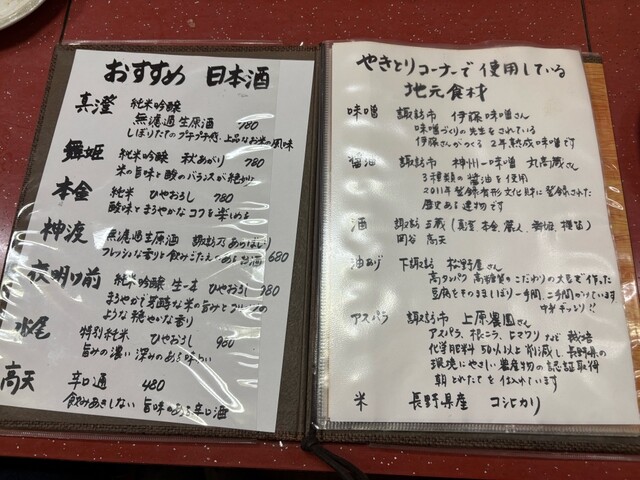 おすすめ 日本酒
真澄 純米吟醸
無濾過生原酒 780
しぼりたてのプチプチ感、上品なお米の風味
舞姫 純米吟醸 秋あがり 780
米の旨味と酸のバランスが絶妙
本金 純米 ひやおろし 780
酸味とまろやかなコクを楽しめる
神渡 無濾過生原酒 諏訪乃あらばしり
フレッシュな香りと飲みごたえのあるお酒 680
夜明け前 純米吟醸 生一本 ひやおろし 980
まろやかで芳醇な米の旨みと
ような穏やかな香り
水尾 特別純米 ひやおろし 980
旨みの濃い 深みのある味わい
高天 辛口通 480
飲みあきしない 旨味のある辛口酒
やきとりコーナーで使用している
地元食材
味噌 諏訪市 伊藤味噌さん
味噌づくりの先生をされている
伊藤さんがつくる 2年熟成味噌です
醤油 諏訪市 神州一味噌 丸高蔵さん
3種類の醤油を使用
2011年 登録有形文化財に登録された
歴史ある建物です
酒 諏訪五蔵(真澄、本金、麗人、舞姫、横笛)
岡谷 高天
油あげ 下諏訪 松野屋さん
高タンパク 高糖質のこだわりの大豆で作った
豆腐をそのまましぼり一手間、二手間かけています
アスパラ 諏訪市 上原農園さん
アスパラ、根ニラ、ヒマワリなど 栽培
化学肥料 50%以上削減し、長野県の
環境にやさしい農産物の認証取得
朝とれたてを仕入れています
米 長野県産 コシヒカリ